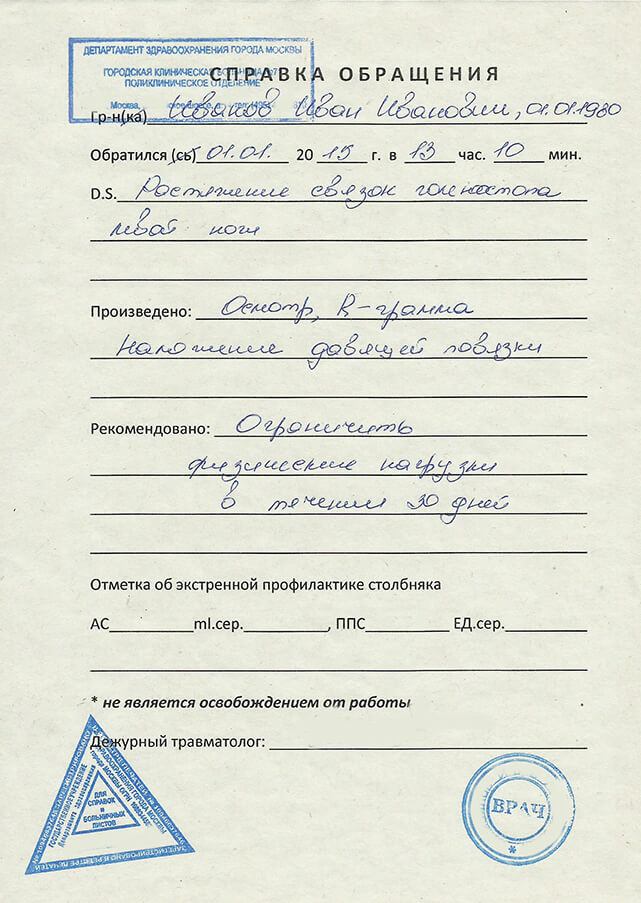 ДЕПАРТАМЕНТ ЗДРАВООХРАНЕНИЯ ГОРОДА МОСКВЫ
ГОРОДСКАЯ КЛИНИЧЕСКАЯ БОЛЬНИЦА №7
ПОЛИКЛИНИЧЕСКОЕ ОТДЕЛЕНИЕ
Москва,
СПРАВКА ОБРАЩЕНИЯ
Гр-н(ка) Иванов Иван Иванович, 01.01.1980
Обратился (сь) 01.01. 2015 г. в 13 час. 10 мин.
D.S. Растяжение связок голеностопа
левой ноги
Произведено: Осмотр, R-грамма
Наложение давящей повязки
Рекомендовано: Ограничить
физические нагрузки
в течении 30 дней
Отметка об экстренной профилактике столбняка
АС__________ml.сер.__________, ППС__________ ЕД.сер.__________
* не является освобождением от работы
Дежурный травматолог:
ДЛЯ
СПРАВОК
и
БОЛЬНИЧНЫХ
ЛИСТОВ
ВРАЧ
*